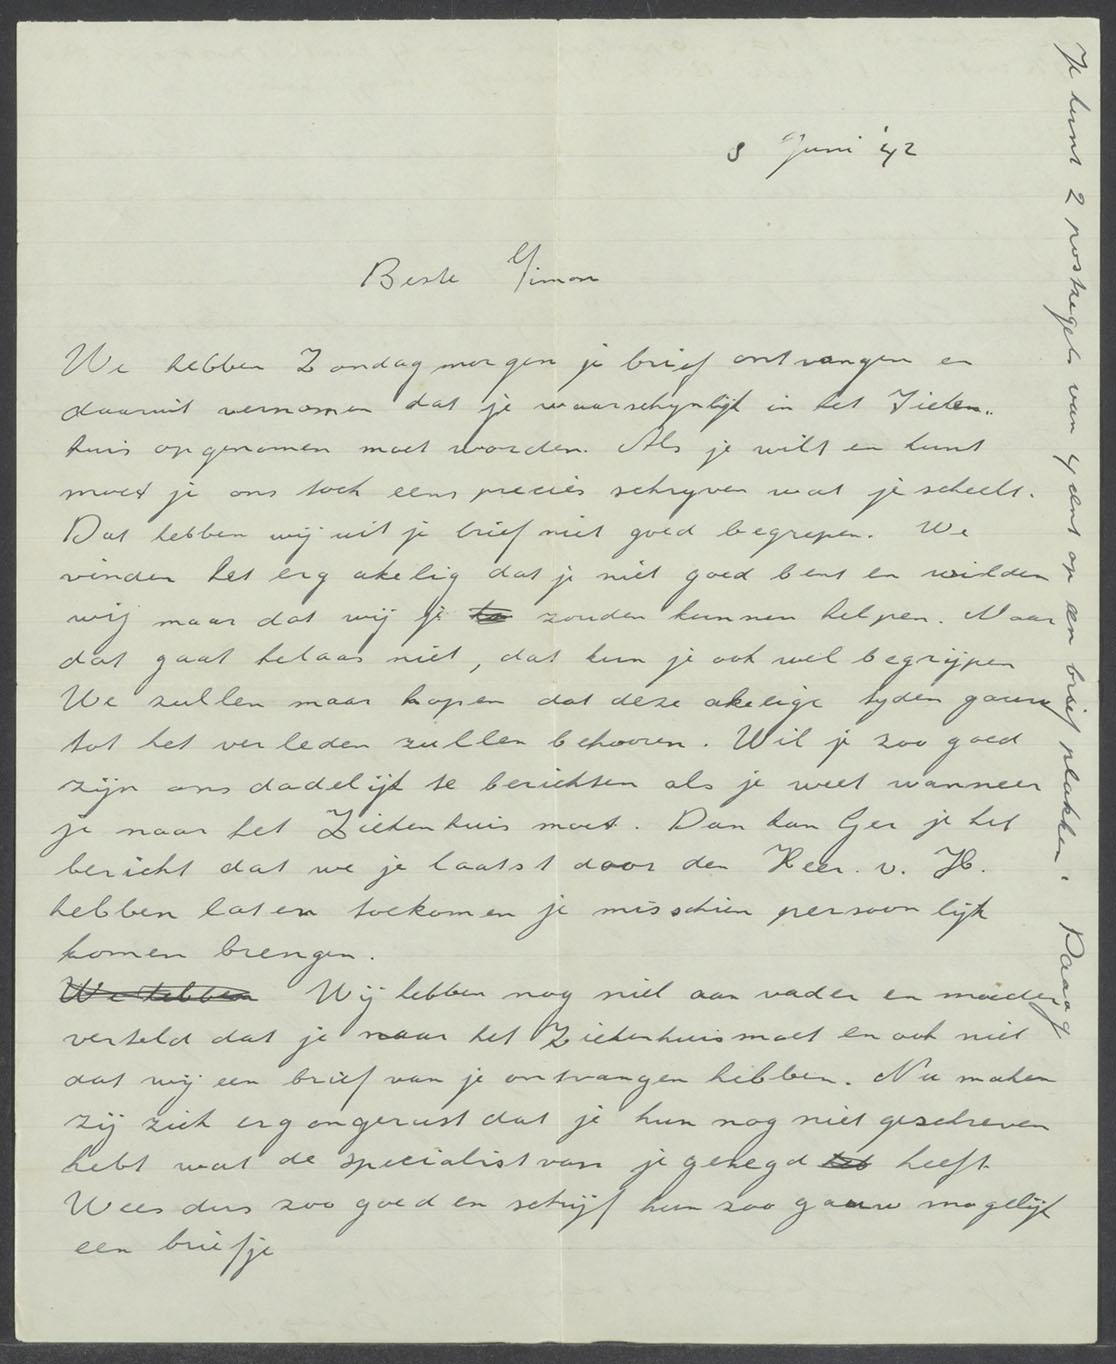 8 Juni '42
Beste Simon
We hebben Zondagmorgen je brief ontvangen en
daaruit vernomen dat je waarschynlijk in het Zieken-
huis opgenomen moet worden. Als je wilt en kunt
moet je ons toch eens precies schryven wat je scheelt.
Dat hebben wij uit je brief niet goed begrepen. We
vinden het erg akelig dat je niet goed bent en wilden
wij maar dat wij je zouden kunnen helpen. Maar
dat gaat helaas niet, dat kun je ook wel begrijpen
We zullen maar hopen dat deze akelige tyden gauw
tot het verleden zullen behooren. Wil je zoo goed
zijn ons dadelijk te berichten als je weet wanneer
je naar het Ziekenhuis moet. Dan kan Ger je het
bericht dat we je laatst door den Heer. v. H.
hebben laten toekomen je misschien persoonlijk
komen brengen.
We hebben Wij hebben nog niet aan vader en moeder
verteld dat je naar het Ziekenhuis moet en ook niet
dat wij een brief van je ontvangen hebben. Nu maken
zij zich erg ongerust dat je hun nog niet geschreven
hebt wat de specialist van je gezegd heeft
Wees dus zoo goed en schrijf hun zoo gauw mogelijk
een briefje
Je kunt 2 postzegels van 4 cent op een brief plakken. Daaag